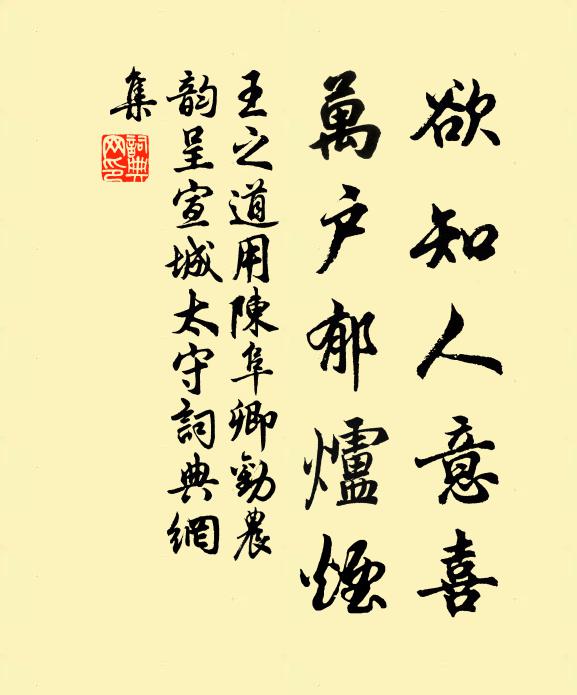 欲知人意喜
萬户郁爐煙
王之道用陳阜卿勸農
韵呈宣城太守詞典網
集
詞典網印